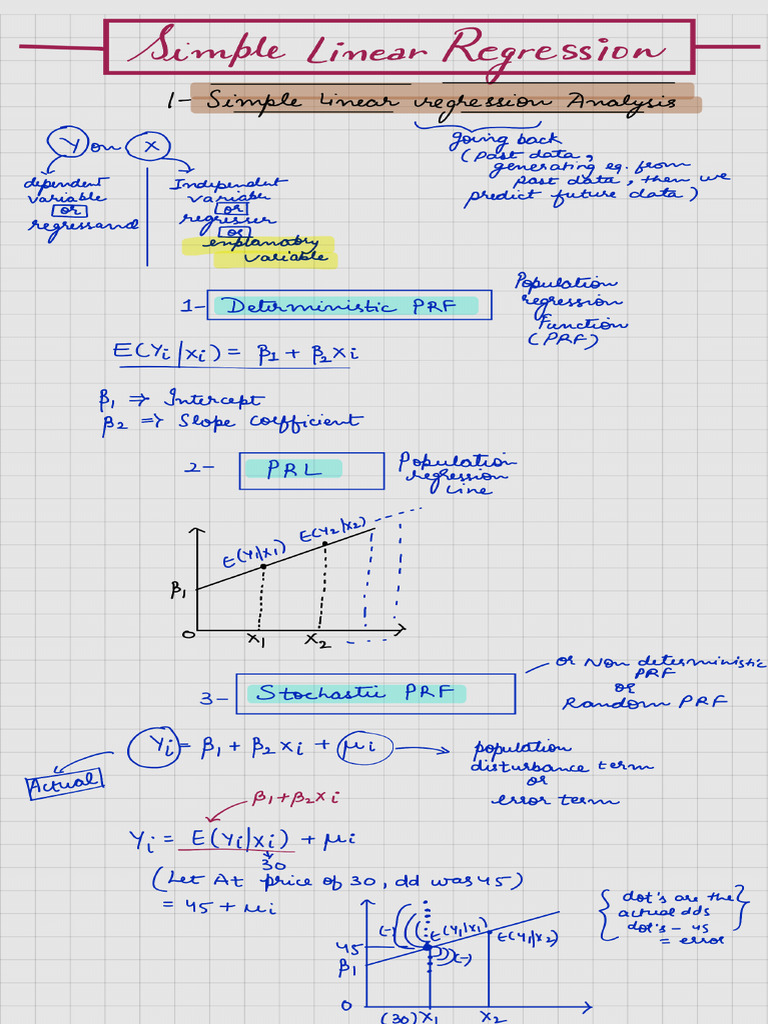 Simple Linear Regression
1- Simple Linear regression Analysis
Y on X
going back
(past data,
generating eq. from
past data, then we
predict future data)
dependent
variable
or
regressand
Independent
variable
or
regresser
or
explanatory
variable
1- Deterministic PRF
Population
regression
Function
(PRF)
E(Yi|xi) = β1 + β2xi
β1 ⇒ Intercept
β2 ⇒ Slope coefficient
2- PRL
Population
regression
line
E(Y1|X1)
E(Y2|X2)
β1
0
X1
X2
3- Stochastic PRF
or Non deterministic
PRF
or
Random PRF
Yi = β1 + β2xi + μi
Actual
population
disturbance term
or
error term
β1+β2xi
Yi = E(Yi|xi) + μi
30
(Let At price of 30, dd was 45)
= 45 + μi
(-)
E(Y1|X1)
E(Y1|X2)
45
(-)
β1
0
(30) X1
X2
{ dot's are the
actual dds
dot's - 45
= error }